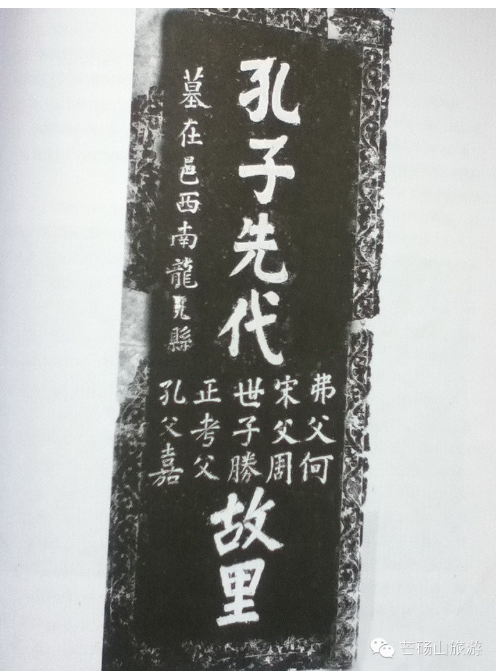 孔子先代
弗父何
宋父周
世子勝
正考父
孔父嘉
故里
墓在邑西南龍縣
芒砀山旅游